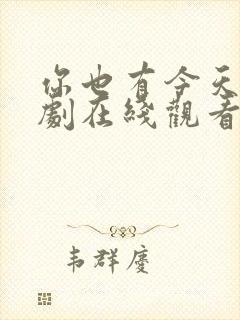 你也有今天
劇在綫觀看
韦群慶